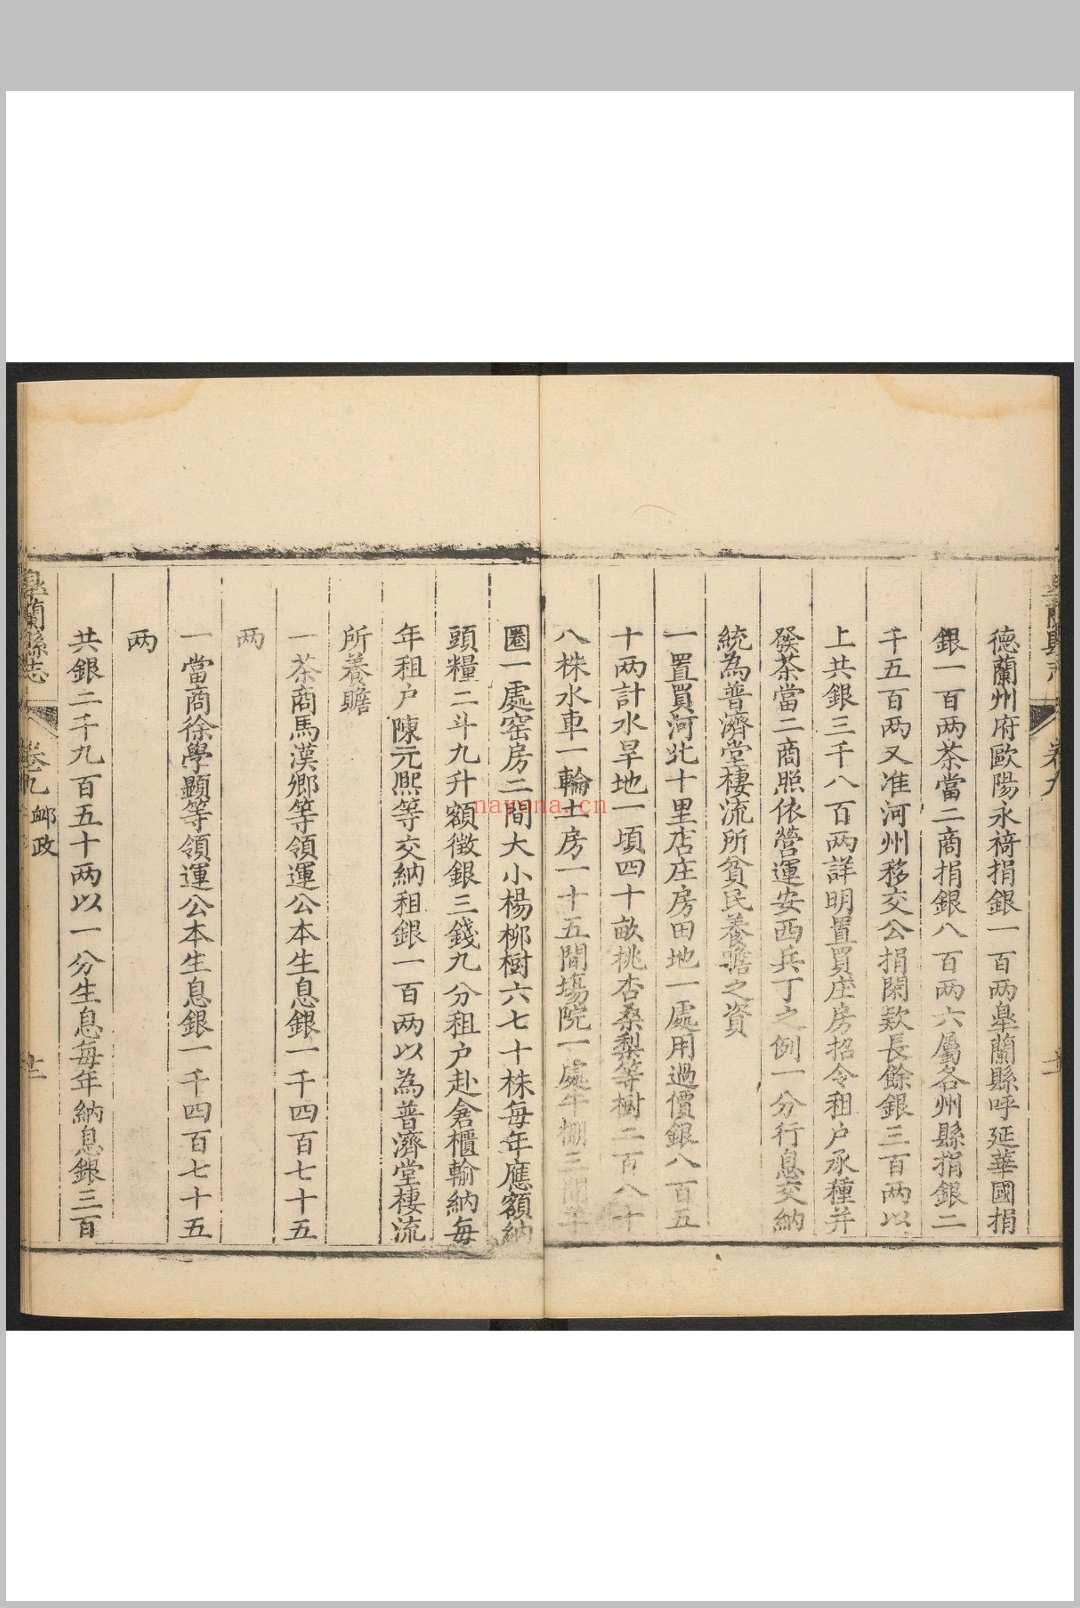 德蘭州府歐陽永裿捐銀一百两臯蘭縣呼延華國捐
銀一百两茶當二商捐銀八百两六屬各州縣捐銀二
千五百两又准河州移交公捐閑欵長餘銀三百两以
上共銀三千八百两詳明置買庄房招令租户承種并
發茶當二商照依營運安西兵丁之例一分行息交納
統為普濟堂棲流所貧民養贍之資
一置買河北十里店庄房田地一處用過價銀八百五
十两計水旱地一頃四十畝桃杏桑梨等樹二百八十
八株水車一輪土房一十五間塲院一處牛棚三間羊
圈一處窑房二間大小楊柳樹六七十株每年應額納
頭糧二斗九升額徵銀三錢九分租户赴倉櫃輸納每
年租户陳元熙等交納租銀一百两以為普濟堂棲流
所養贍
一茶商馬漢鄉等領運公本生息銀一千四百七十五
两
一當商徐學顯等領運公本生息銀一千四百七十五
两
共銀二千九百五十两以一分生息每年納息銀三百
臯蘭縣志
卷九
卹政
nayona.cn